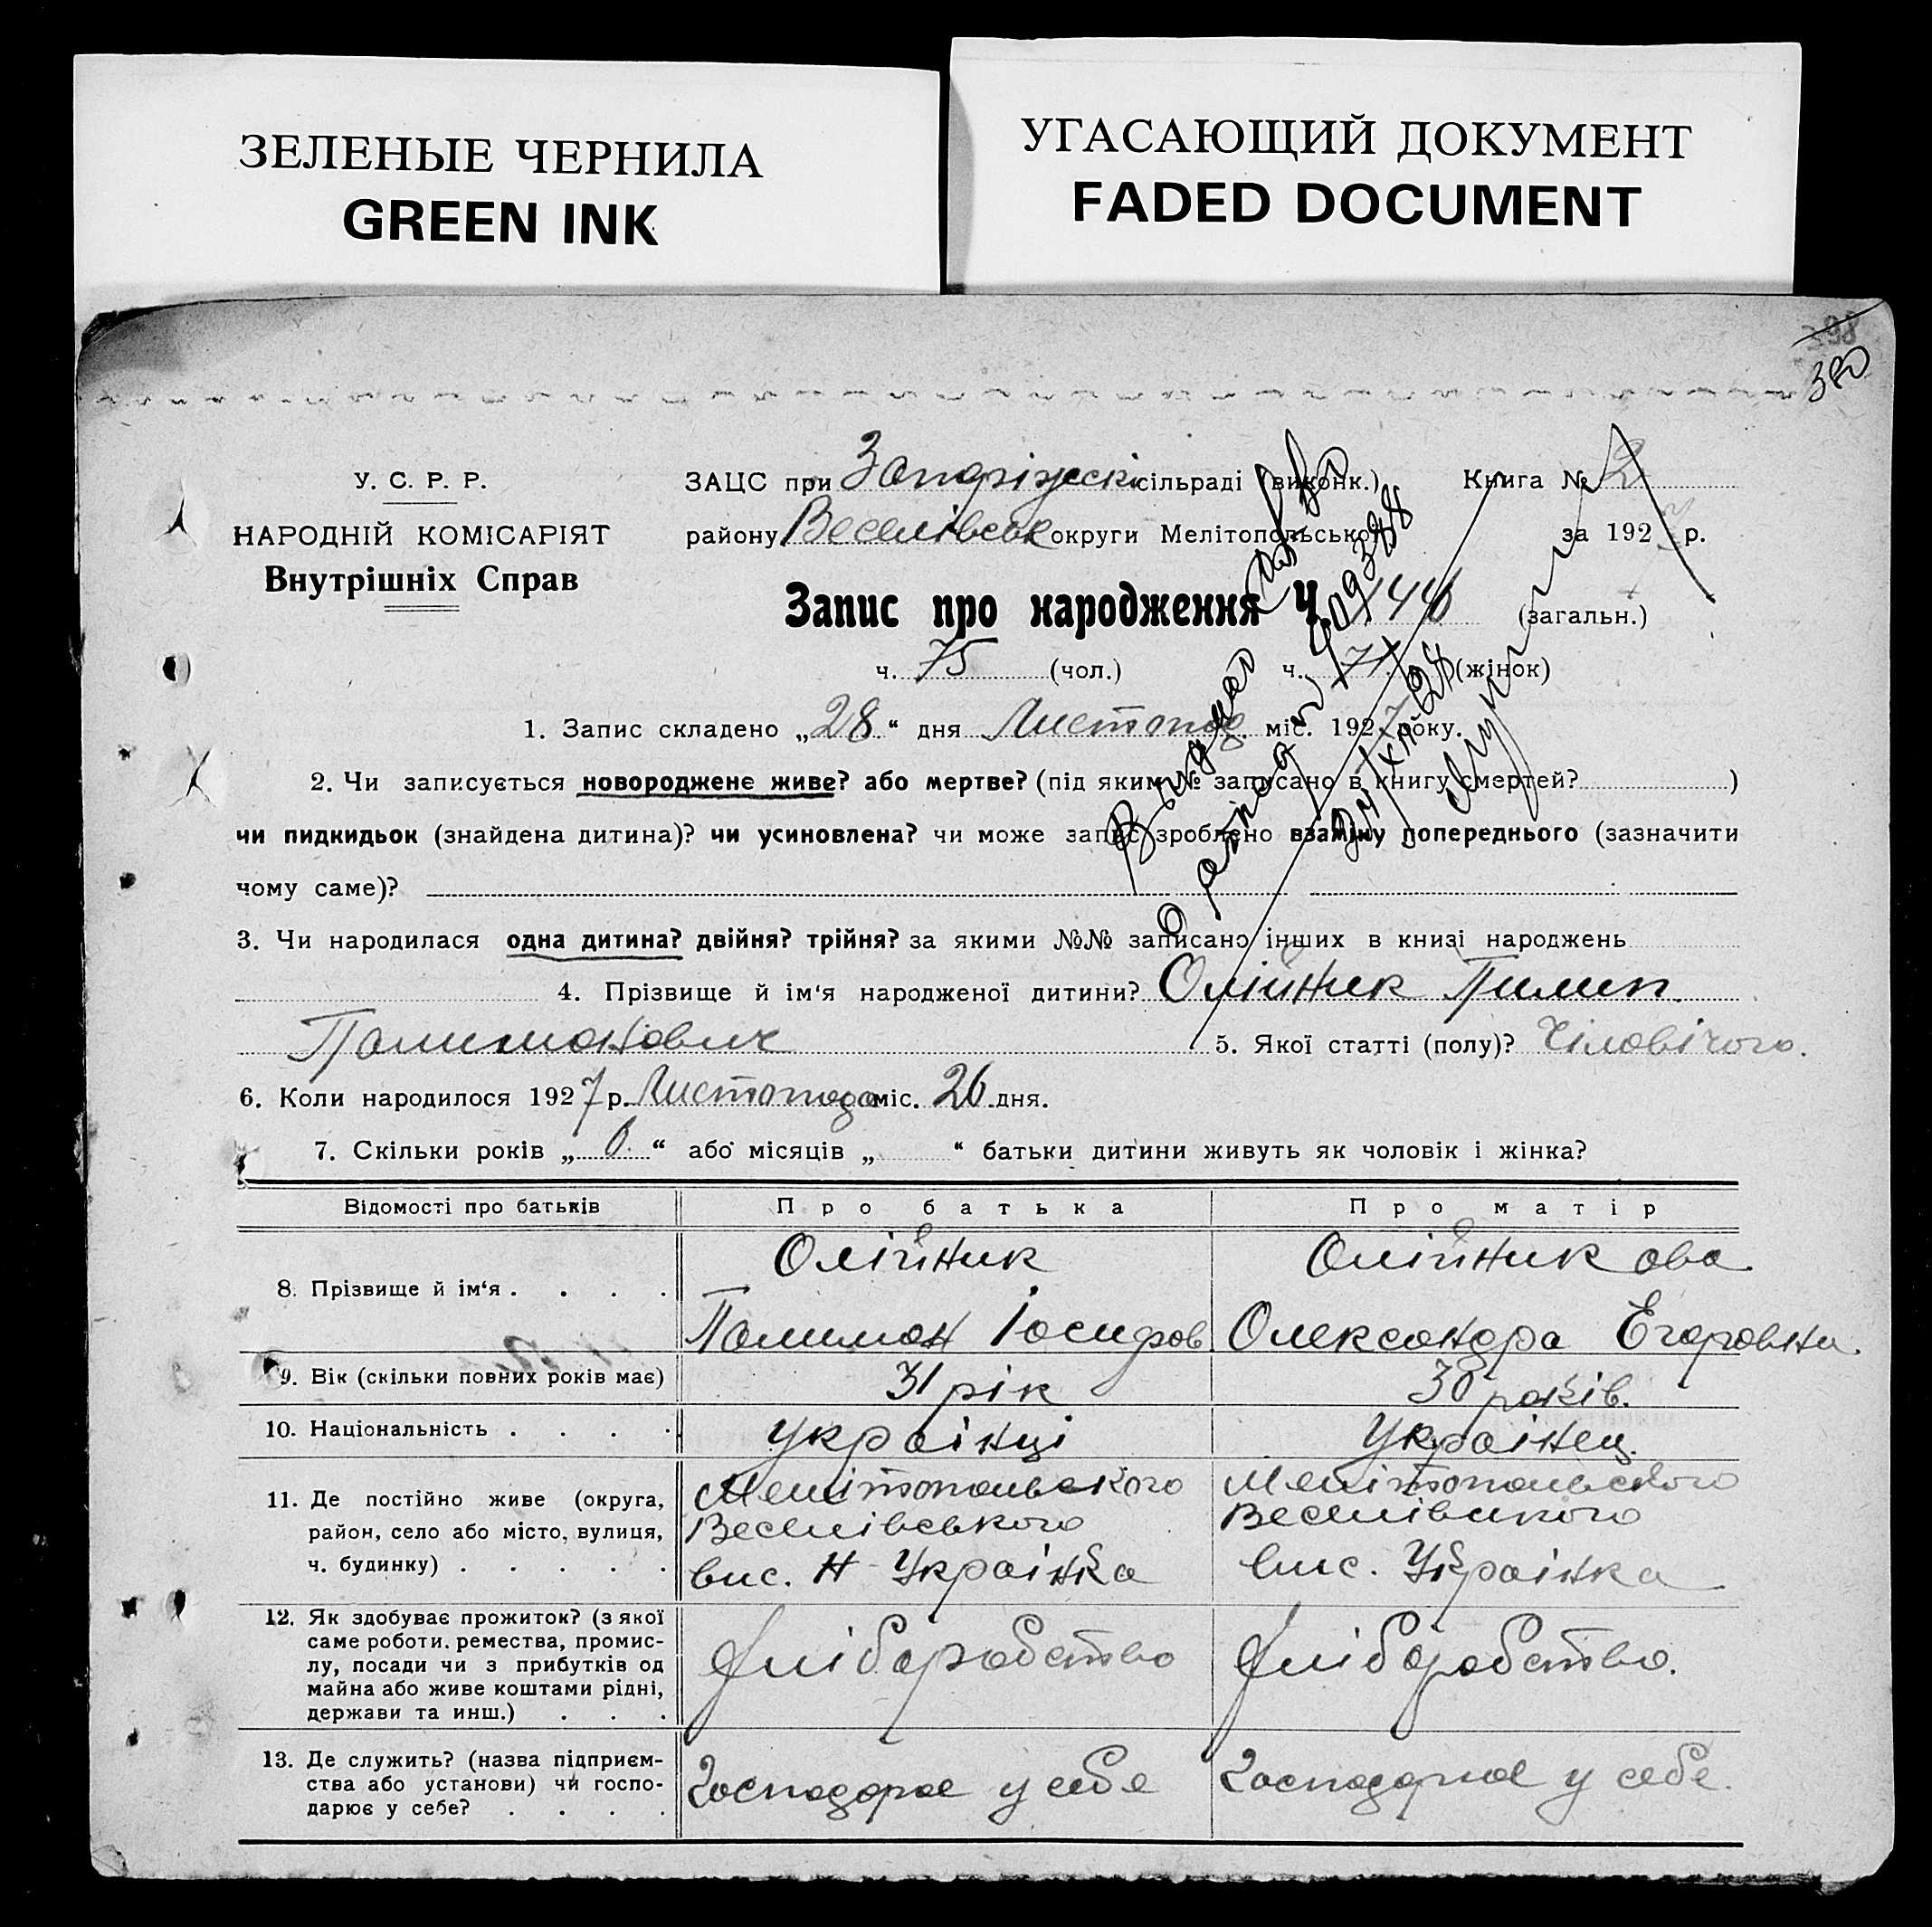 ЗЕЛЕНЫЕ ЧЕРНИЛА
GREEN INK
УГАСАЮЩИЙ ДОКУМЕНТ
FADED DOCUMENT
380
У. С. Р. Р.
НАРОДНІЙ КОМІСАРІЯТ
Внутрішніх Справ
ЗАЦС при Запоріжскі сільраді (виконк.) Книга № 2
району Веселівськ округи Мелітопольської за 1927 р.
Запис про народження Ч. 146 (загальн.)
ч. 75 (чол.) ч. 71 (жінок)
1. Запис складено „28“ дня Листопад міс. 1927 року.
2. Чи записується новороджене живе? або мертве? (під яким № записано в книгу смертей? )
чи пидкидьок (знайдена дитина)? чи усиновлена? чи може запис зроблено взаміну попереднього (зазначити
чому саме)?
3. Чи народилася одна дитина? двійня? трійня? за якими №№ записано інших в книзі народжень
4. Прізвище й ім‘я народженої дитини? Олійник Пилип
Палимонович 5. Якої статті (полу)? Чіловічого.
6. Коли народилося 1927 р. Листопада міс. 26 дня.
7. Скільки років „ 6 “ або місяців „ “ батьки дитини живуть як чоловік і жінка?
Відомості про батьків Про батька Про матір
8. Прізвище й ім‘я . . . . Олійник Палимон Іосифов Олійникова Олександра Егоровна.
9. Вік (скільки повних років має) 31 рік 30 років.
10. Національність . . . . українці Українец.
11. Де постійно живе (округа, Мелітопольського Мелітопольского
район, село або місто, вулиця, Веселівського Веселівского
ч. будинку) . . . . . вис. Н-Украінка вис. Украінка
12. Як здобуває прожиток? (з якої
саме роботи. ремества, промис-
лу, посади чи з прибутків од Хліборобство Хліборобство.
майна або живе коштами рідні,
держави та инш.) . . .
13. Де служить? (назва підприєм-
ства або установи) чи госпо- Господарює у себе Господарює у себе.
дарює у себе? . . . .